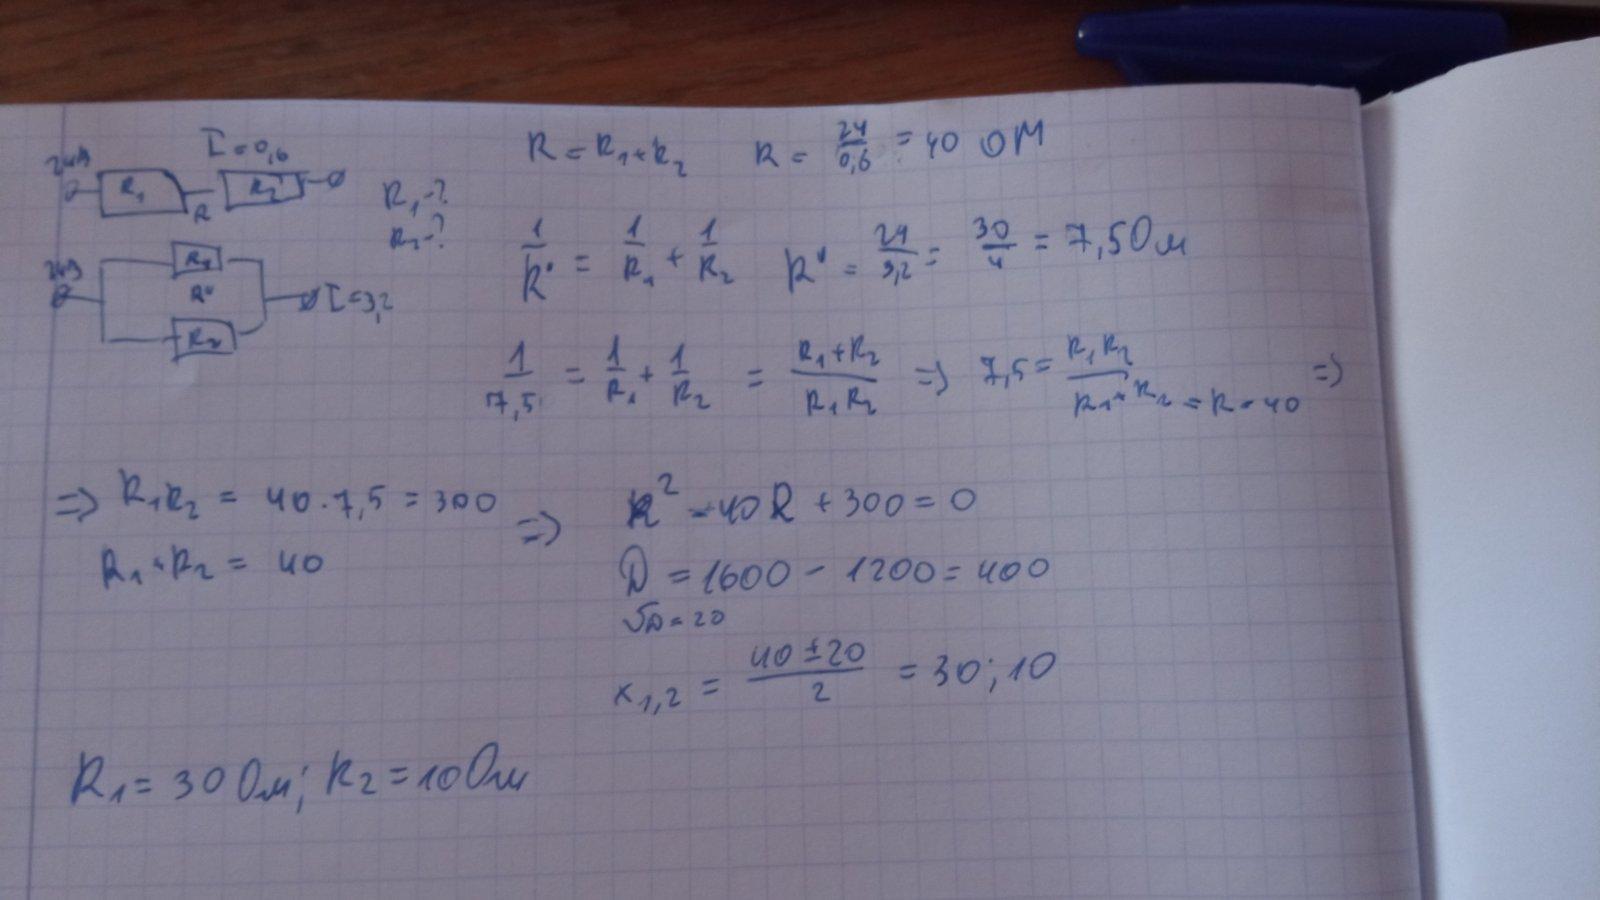 24В I = 0,6
R₁ R R₂
R₁ -?
R₂ -?
24В R₁ R' R₂ I = 3,2
R = R₁ + R₂ R = 24/0,6 = 40 ОМ
1/R' = 1/R₁ + 1/R₂ R' = 24/3,2 = 30/4 = 7,5 Ом
1/7,5 = 1/R₁ + 1/R₂ = (R₁ + R₂)/(R₁R₂) => 7,5 = R₁R₂/(R₁ + R₂) = R = 40 =>
=> R₁R₂ = 40 · 7,5 = 300
R₁ + R₂ = 40
=> R² - 40R + 300 = 0
D = 1600 - 1200 = 400
√D = 20
x₁,₂ = (40 ± 20)/2 = 30; 10
R₁ = 30 Ом; R₂ = 10 Ом